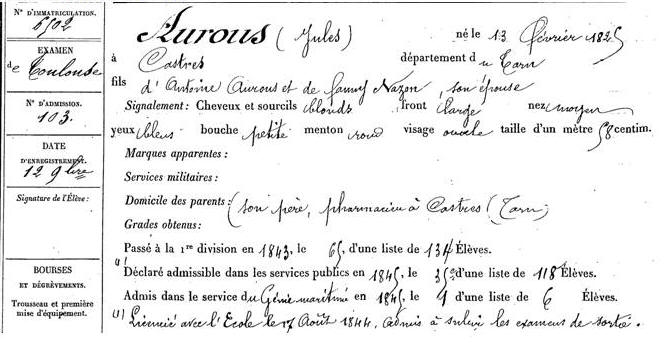 N° D'IMMATRICULATION.
6502
EXAMEN
de Toulouse
N° D'ADMISSION.
103.
DATE
D'ENREGISTREMENT.
12 9bre
Signature de l'Élève :
BOURSES
ET DÉGRÈVEMENTS.
Trousseau et première
mise d'équipement.
Aurous (Jules) né le 13 février 1825
à Castres département du Tarn
fils d'Antoine Aurous et de fanny Nazon, son épouse
Signalement : Cheveux et sourcils blonds front large nez moyen
yeux bleus bouche petite menton rond visage ovale taille d'un mètre 58 centim.
Marques apparentes :
Services militaires :
Domicile des parents : (son père, pharmacien à Castres (Tarn)
Grades obtenus :
Passé à la 1re division en 1843, le 65, d'une liste de 134 Élèves.
(1) Déclaré admissible dans les services publics en 1845, le 35e d'une liste de 118 Élèves.
Admis dans le service du Génie maritime en 1845, le 4 d'une liste de 6 Élèves.
(1) Licencié avec l'Ecole le 17 Août 1844, admis à subir les examens de sortie.